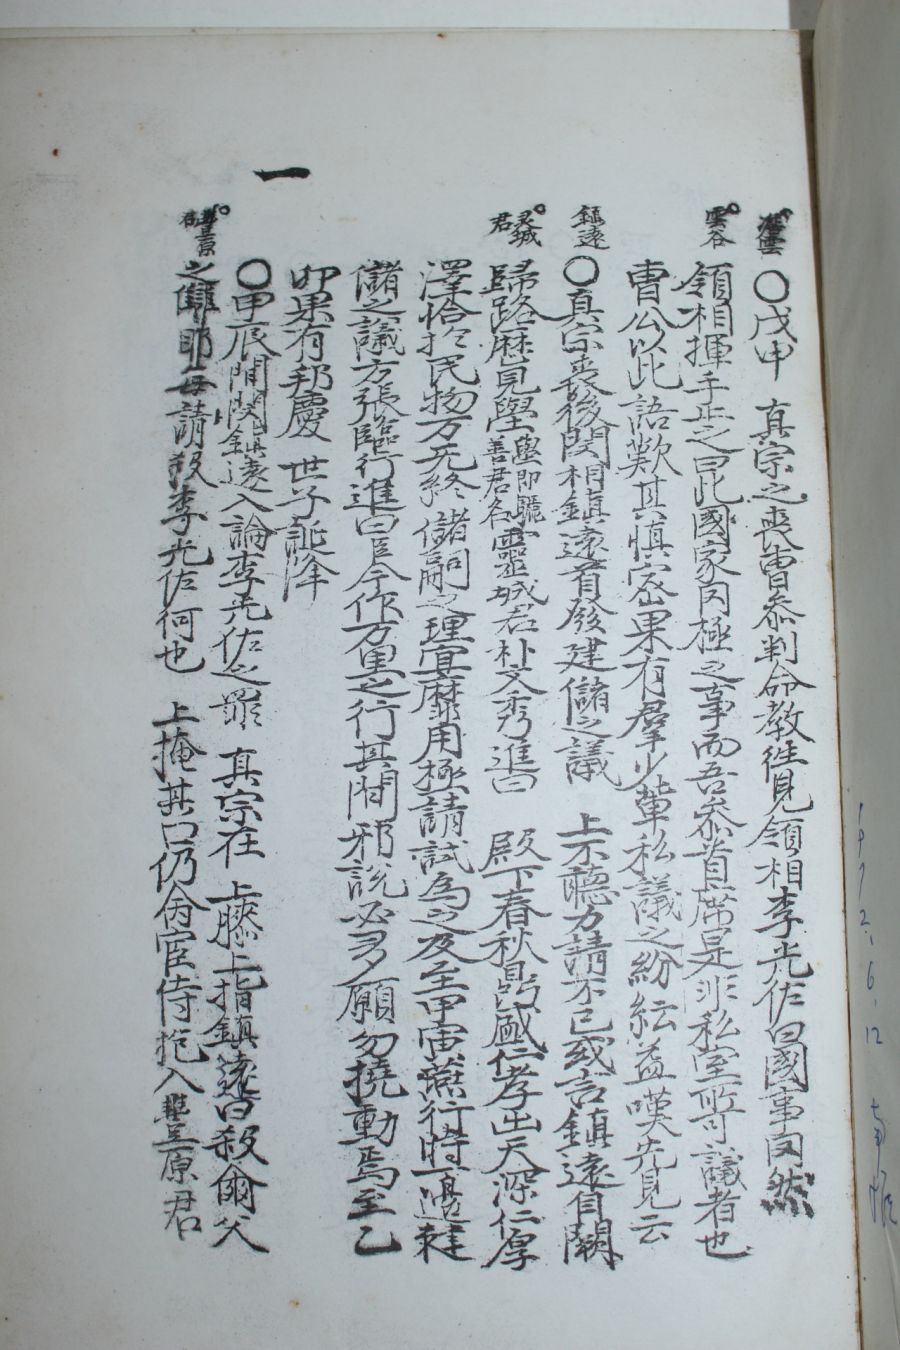 ○戊申 真宗之喪曺叅判命教徃見領相李光佐曰國事罔然
雲谷
領相揮手止之曰此國家罔極之事而吾叅首席是非私室所可議者也
曺公以此語歎其愼密果有羣少輩私議之紛紜益嘆先見云
鎮遠
○真宗喪後閔相鎮遠首發建儲之議 上不聽力請不已或言鎮遠自闕
灵城君
歸路歷見壆 善君名 靈城君朴文秀進曰 殿下春秋鼎盛仁孝出天深仁厚
澤恰於民物万无終儲嗣之理宜靡用極請試爲之及至甲寅燕行時一邊建
儲之議方張臨行進曰臣今作万里之行其間邪說必多願勿撓動焉至乙
卯果有邦慶 世子誕降
一
○甲辰間閔鎮遠入論李光佐之罪 真宗在 上膝上指鎮遠曰殺爾父
之讐耶每請殺李光佐何也 上掩其口仍命宦侍抱入 豊原君
1972.6.12